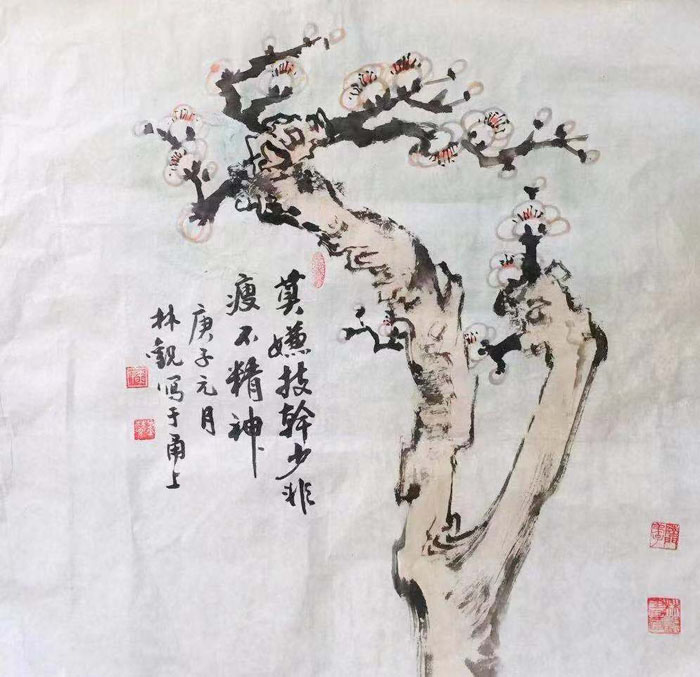 莫嫌枝幹少非
瘦不精神
庚子元月
林觀写于甬上